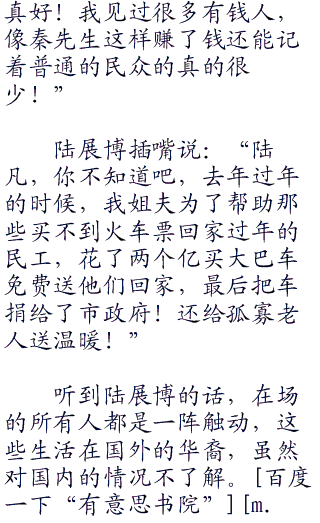 真好！我见过很多有钱人，
像秦先生这样赚了钱还能记
着普通的民众的真的很
少！”
陆展博插嘴说：“陆
凡，你不知道吧，去年过年
的时候，我姐夫为了帮助那
些买不到火车票回家过年的
民工，花了两个亿买大巴车
免费送他们回家，最后把车
捐给了市政府！还给孤寡老
人送温暖！”
听到陆展博的话，在场
的所有人都是一阵触动，这
些生活在国外的华裔，虽然
对国内的情况不了解。[百度
一下“有意思书院”][m.